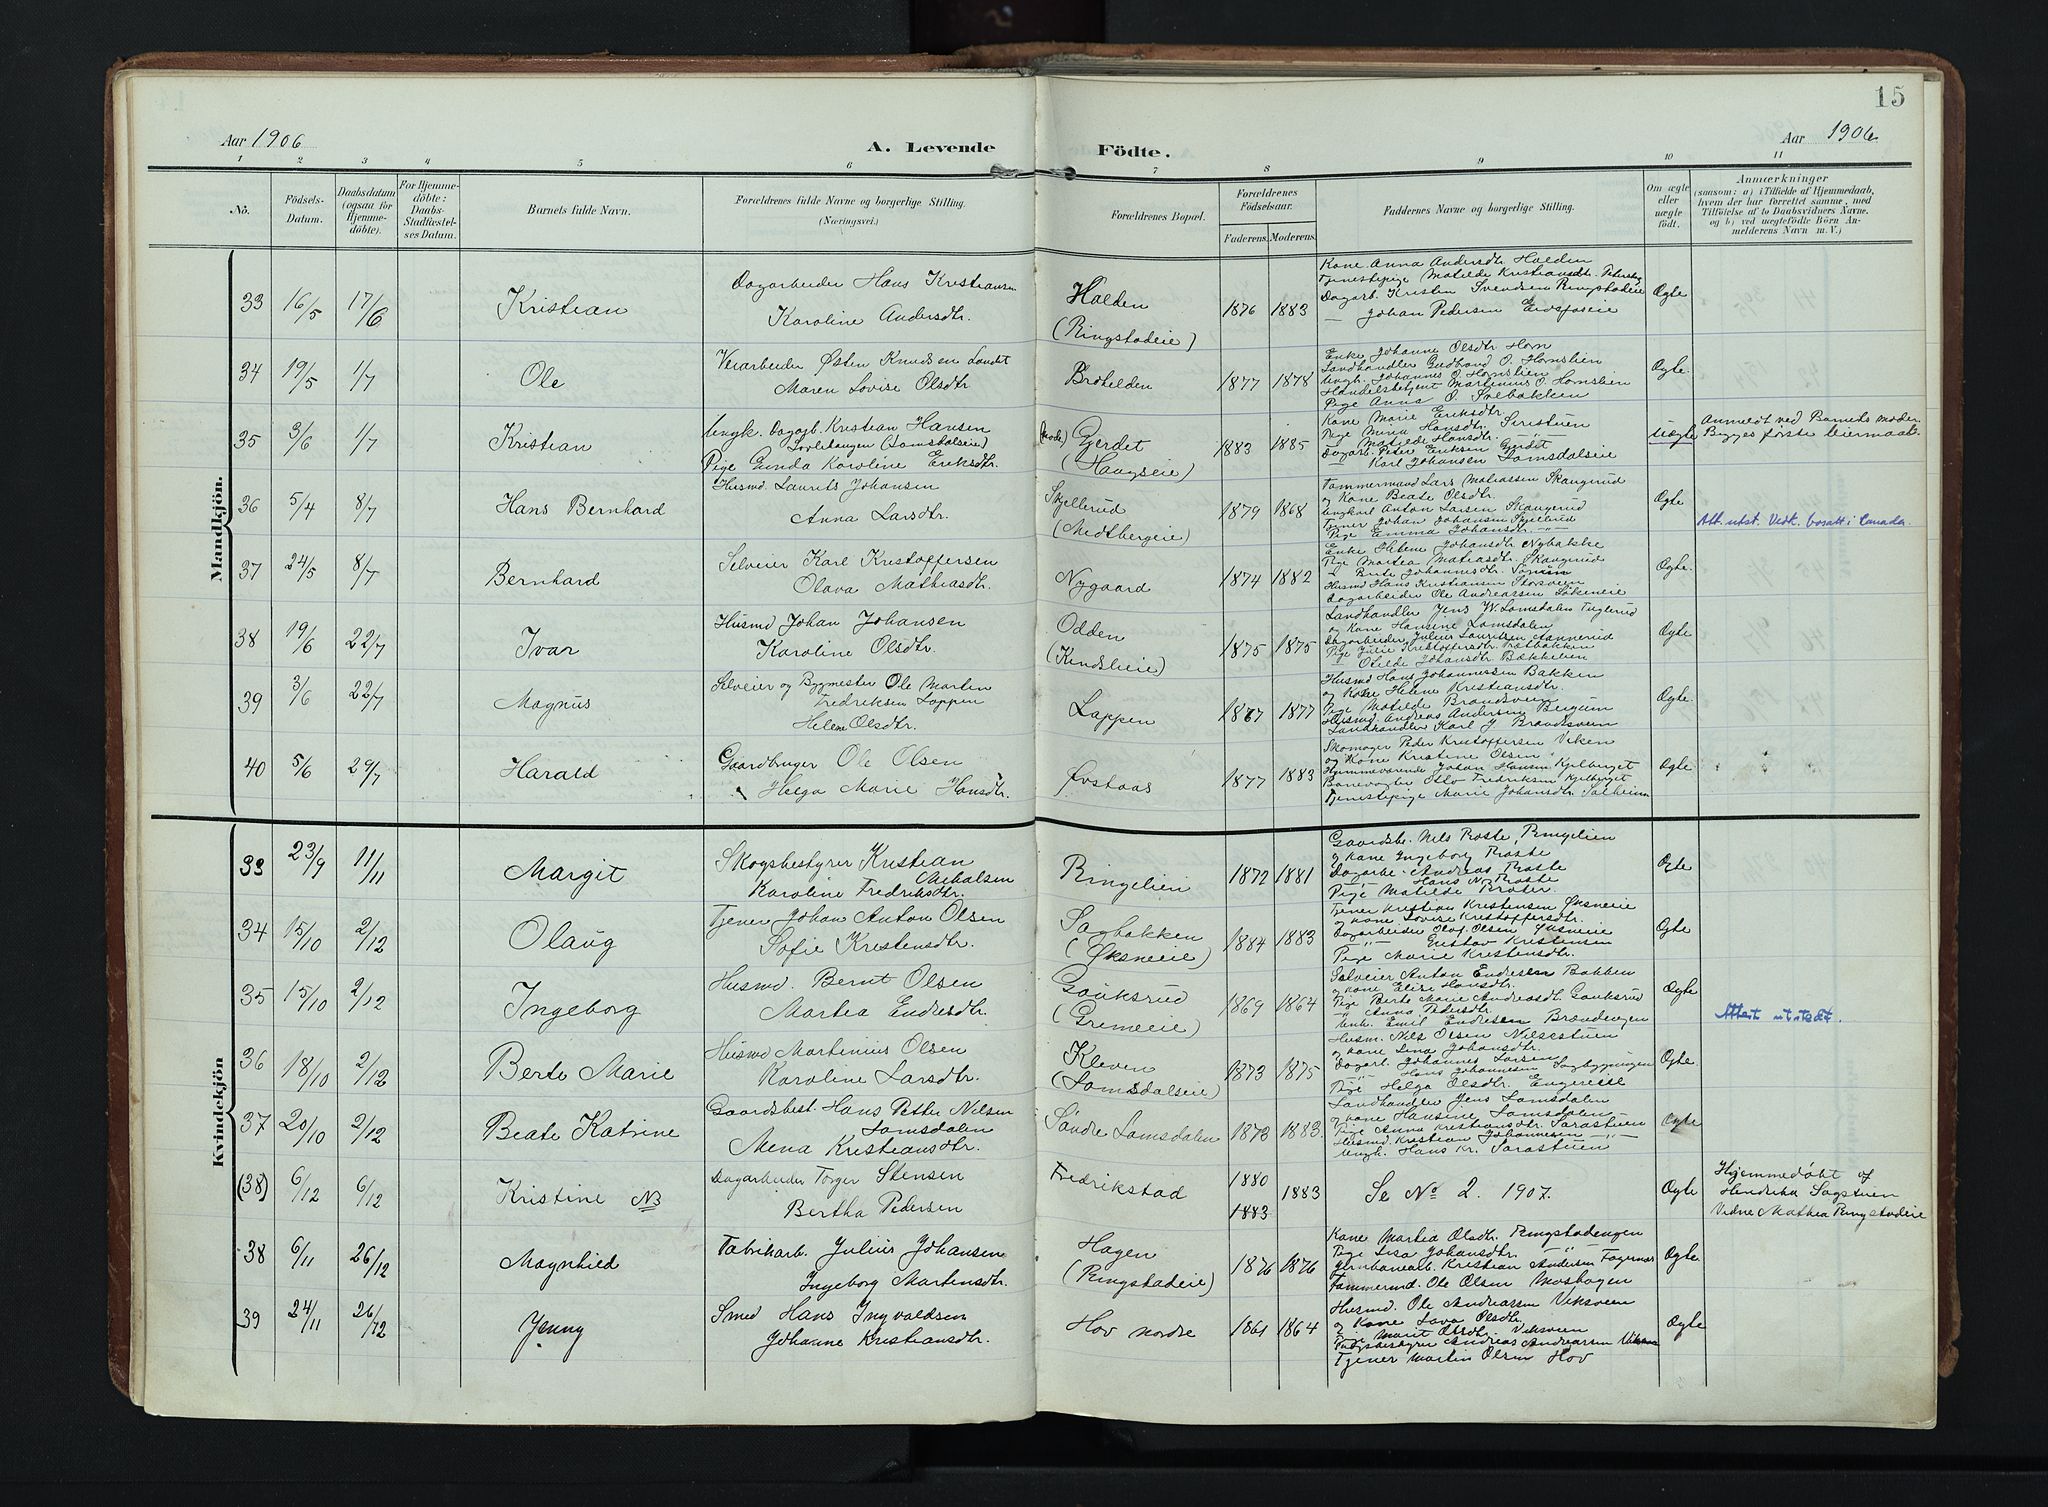 15
Aar 1906
A. Levende Födte.
Aar 1906
1 2 3 4 5 6 7 8 9 10 11
No.
Födsels-Datum.
Daabsdatum (ogsaa for Hjemmedöbte).
For Hjemmedöbte: Daabs-Stadfæstelses Datum.
Barnets fulde Navn.
Forældrenes fulde Navne og borgerlige Stilling.
(Næringsvei.)
Forældrenes Bopæl.
Forældrenes Födselsaar.
Faderens. Moderens.
Faddernes Navne og borgerlige Stilling.
Om ægte eller uægte födt.
Anmærkninger
(saasom: a) i Tilfælde af Hjemmedaab,
hvem der har forrettet samme, med
Tilföielse af to Daabsvidners Navne.
og b) ved uægtefödte Börn Anmelderens Navn m. V.)
Mandkjön.
33 16/5 17/6 Kristian
Dagarbeider Hans Kristiansen
Karoline Andersdtr.
Halden
(Ringstadeie)
1876 1883
Kone Anna Andersdtr. Halden
Tjenestepige Matilde Kristiansdtr.
Dagarb. Kristen Svendsen Ringstadeie
— Johan Pedersen
Ægte
34 19/5 1/7 Ole
Veiarbeider Østen Knudsen
Maren Lovise Olsdtr
Bråhelden
1877 1878
Enke Johanne Olsdtr. Horn
Landhandler Gudbrand O. Hornslien
Ungk. Johannes O. Hornslien
Handelsbetjent Martinius O. Hornslien
Pige Anna O. Solbakken
Ægte
35 3/6 1/7 Kristian
Ungk. Dagarb. Kristian Hansen
(Lomsdalseie)
Pige Gunda Karoline Eriksdtr.
Gjerdet
(Haugseie)
1883 1885
Kone Marie Eriksdtr.
Pige Mina Hansdtr.
— Matilde Hansdtr.
Dagarb. Peter Eriksen Gjerdet
— Karl Johansen Lomsdalseie
Uægte
Anmeldt ved Barnets Moder
Begges første leiermaal.
36 5/4 8/7 Hans Bernhard
Husmd. Laurits Johansen
Anna Larsdtr.
Skjellerud
(Midtbergeie)
1879 1868
Tømmermand Lars Matiassen Skangrud
og Kone Beate Olsdtr.
Ungkarl Anton Larsen Skangrud
Tjener Johan Johansen Skjellerud
Pige Emma Johansdtr. —"—
Ægte
Att. utst. Vedk. bosatt i Canada.
37 24/5 8/7 Bernhard
Selveier Karl Kristoffersen
Olava Mathiasdtr.
Nygaard
1874 1882
Enke Helene Johansdtr. Nybakke
Pige Martea Matiasdtr. Skangrud
Berte Johannesdtr.
Husmd Hans Kristiansen Storsveen
Dagarbeider Ole Andreassen
Ægte.
38 19/6 22/7 Ivar
Husmd Johan Johansen
Karoline Olsdtr.
Odden
(Kindslieie)
1875 1875
Landhandler Jens W. Lomsdalen Fuglerud
og Kone Hansine Lomsdalen
Dagarbeider Julius Lauritsen Aannerud
Pige Julie Kristoffersdtr.
Otilde Johansdtr. Bækkelien
Ægte
39 3/6 22/7 Magnus
Selveier og Bygmester Ole Marten
Fredriksen Lappen
Helene Olsdtr.
Lappen
1867 1877
Husmd Hans Johannessen Bakken
og Kone Helene Kristiansdtr.
Pige Matilde Brandsveen
Husmd Andreas Andersen
Landhandler Karl J. Brandsveen
Ægte.
40 5/6 29/7 Harald
Gaardbruger Ole Olsen
Helga Marie Hansdtr.
Øvstaas
1877 1883
Skomager Peder Kristoffersen Viken
og Kone Kristine Olsen
Hjemmeværende Johan Hansen Kjelberget
Banevogter Otto Fredriksen Kjelberget
Tjenestepige Marie Johansdtr. Solheim
Ægte
Kvindekjön
33 23/9 11/11 Margit
Skogsbestyrer Kristian
Mikalsen
Karoline Fredriksdtr.
Ringelien
1872 1881
Gaardsb. Nils Roste, Ringelien
og kone Ingeborg Roste
Dagarb. Andreas Roste
" Hans N. Roste
Pige Matilde Bråter.
Ægte
34 15/10 2/12 Olaug
Tjener Johan Anton Olsen
Sofie Kristensdtr.
Sagbakken
(Øksneeie)
1884 1883
Tjener Kristian Kristensen Øksneeie
og kone Lovise Kristoffersdtr.
Dagarbeider Olof Olsen Øksneeie
—"— Gustav Kristensen
Pige Marie Kristensdtr.
Ægte
35 15/10 2/12 Ingeborg
Husmd. Bernt Olsen
Martea Endresdtr.
Gauksrud
(Grimeeie)
1869 1864
Selveier Anton Endresen Bakken
og kone Elise Hansdtr.
Pige Berte Marie Andreasdtr. Gauksrud
" Anna Pedersdtr.
Unk. Emil Endresen Brændengen
Ægte
Attest utstedt.
36 18/10 2/12 Berte Marie
Husmd Martinius Olsen
Karoline Larsdtr.
Kleven
(Lomsdalseie)
1873 1875
Husm. Nils Olsen Nilsestuen
og kone Lina Johansdtr.
Dagarb. Johannes Larsen
" Hans Johannesen Sagbygningen
Pige Helga Olsdtr. Engereie
Ægte.
37 20/10 2/12 Beate Katrine
Gaardsbest. Hans Petter Nilsen
Lomsdalen
Mena Kristiansdtr.
Søndre Lomsdalen
1873 1883.
Landhandler Jens Lomsdalen
og kone Hansine Lomsdalen
Pige Anna Kristiansdtr. Sarastuen
Husmd Kristian Johannesen —"—
Ungk. Hans Kr. Sarastuen
Ægte
(38) 6/12 6/12 Kristine NB
Dagarbeider Torger Stensen
Bertha Pedersen
Fredrikstad
1880 1883
1883
Se No 2. 1907.
Ægte
Hjemmedøbt af
Hendrika Sagstuen
Vidne Mathea Ringstadeie
38 6/11 26/12 Magnhild
Fabrikarb. Julius Johansen
Ingeborg Martensdtr.
Hagen
(Ringstadeie)
1876 1876
Kone Martia Olsdtr. Ringstadengen
Pige Lisa Johansdtr. —"—
Jernbanearb. Kristian Andersen Fagernæs
Tømmermd. Ole Olsen Moshagen
Ægte.
39 24/11 26/12 Jenny
Smed Hans Ingvaldsen
Johanne Kristiansdtr.
Hov nordre
1861 1864
Husmd. Ole Andreassen Viksveen
og Kone Lava Olsdtr.
Pige Marit Olsdtr. Viksveen
Andreas Andreassen
Tjener Martin Olsen Hov
Ægte